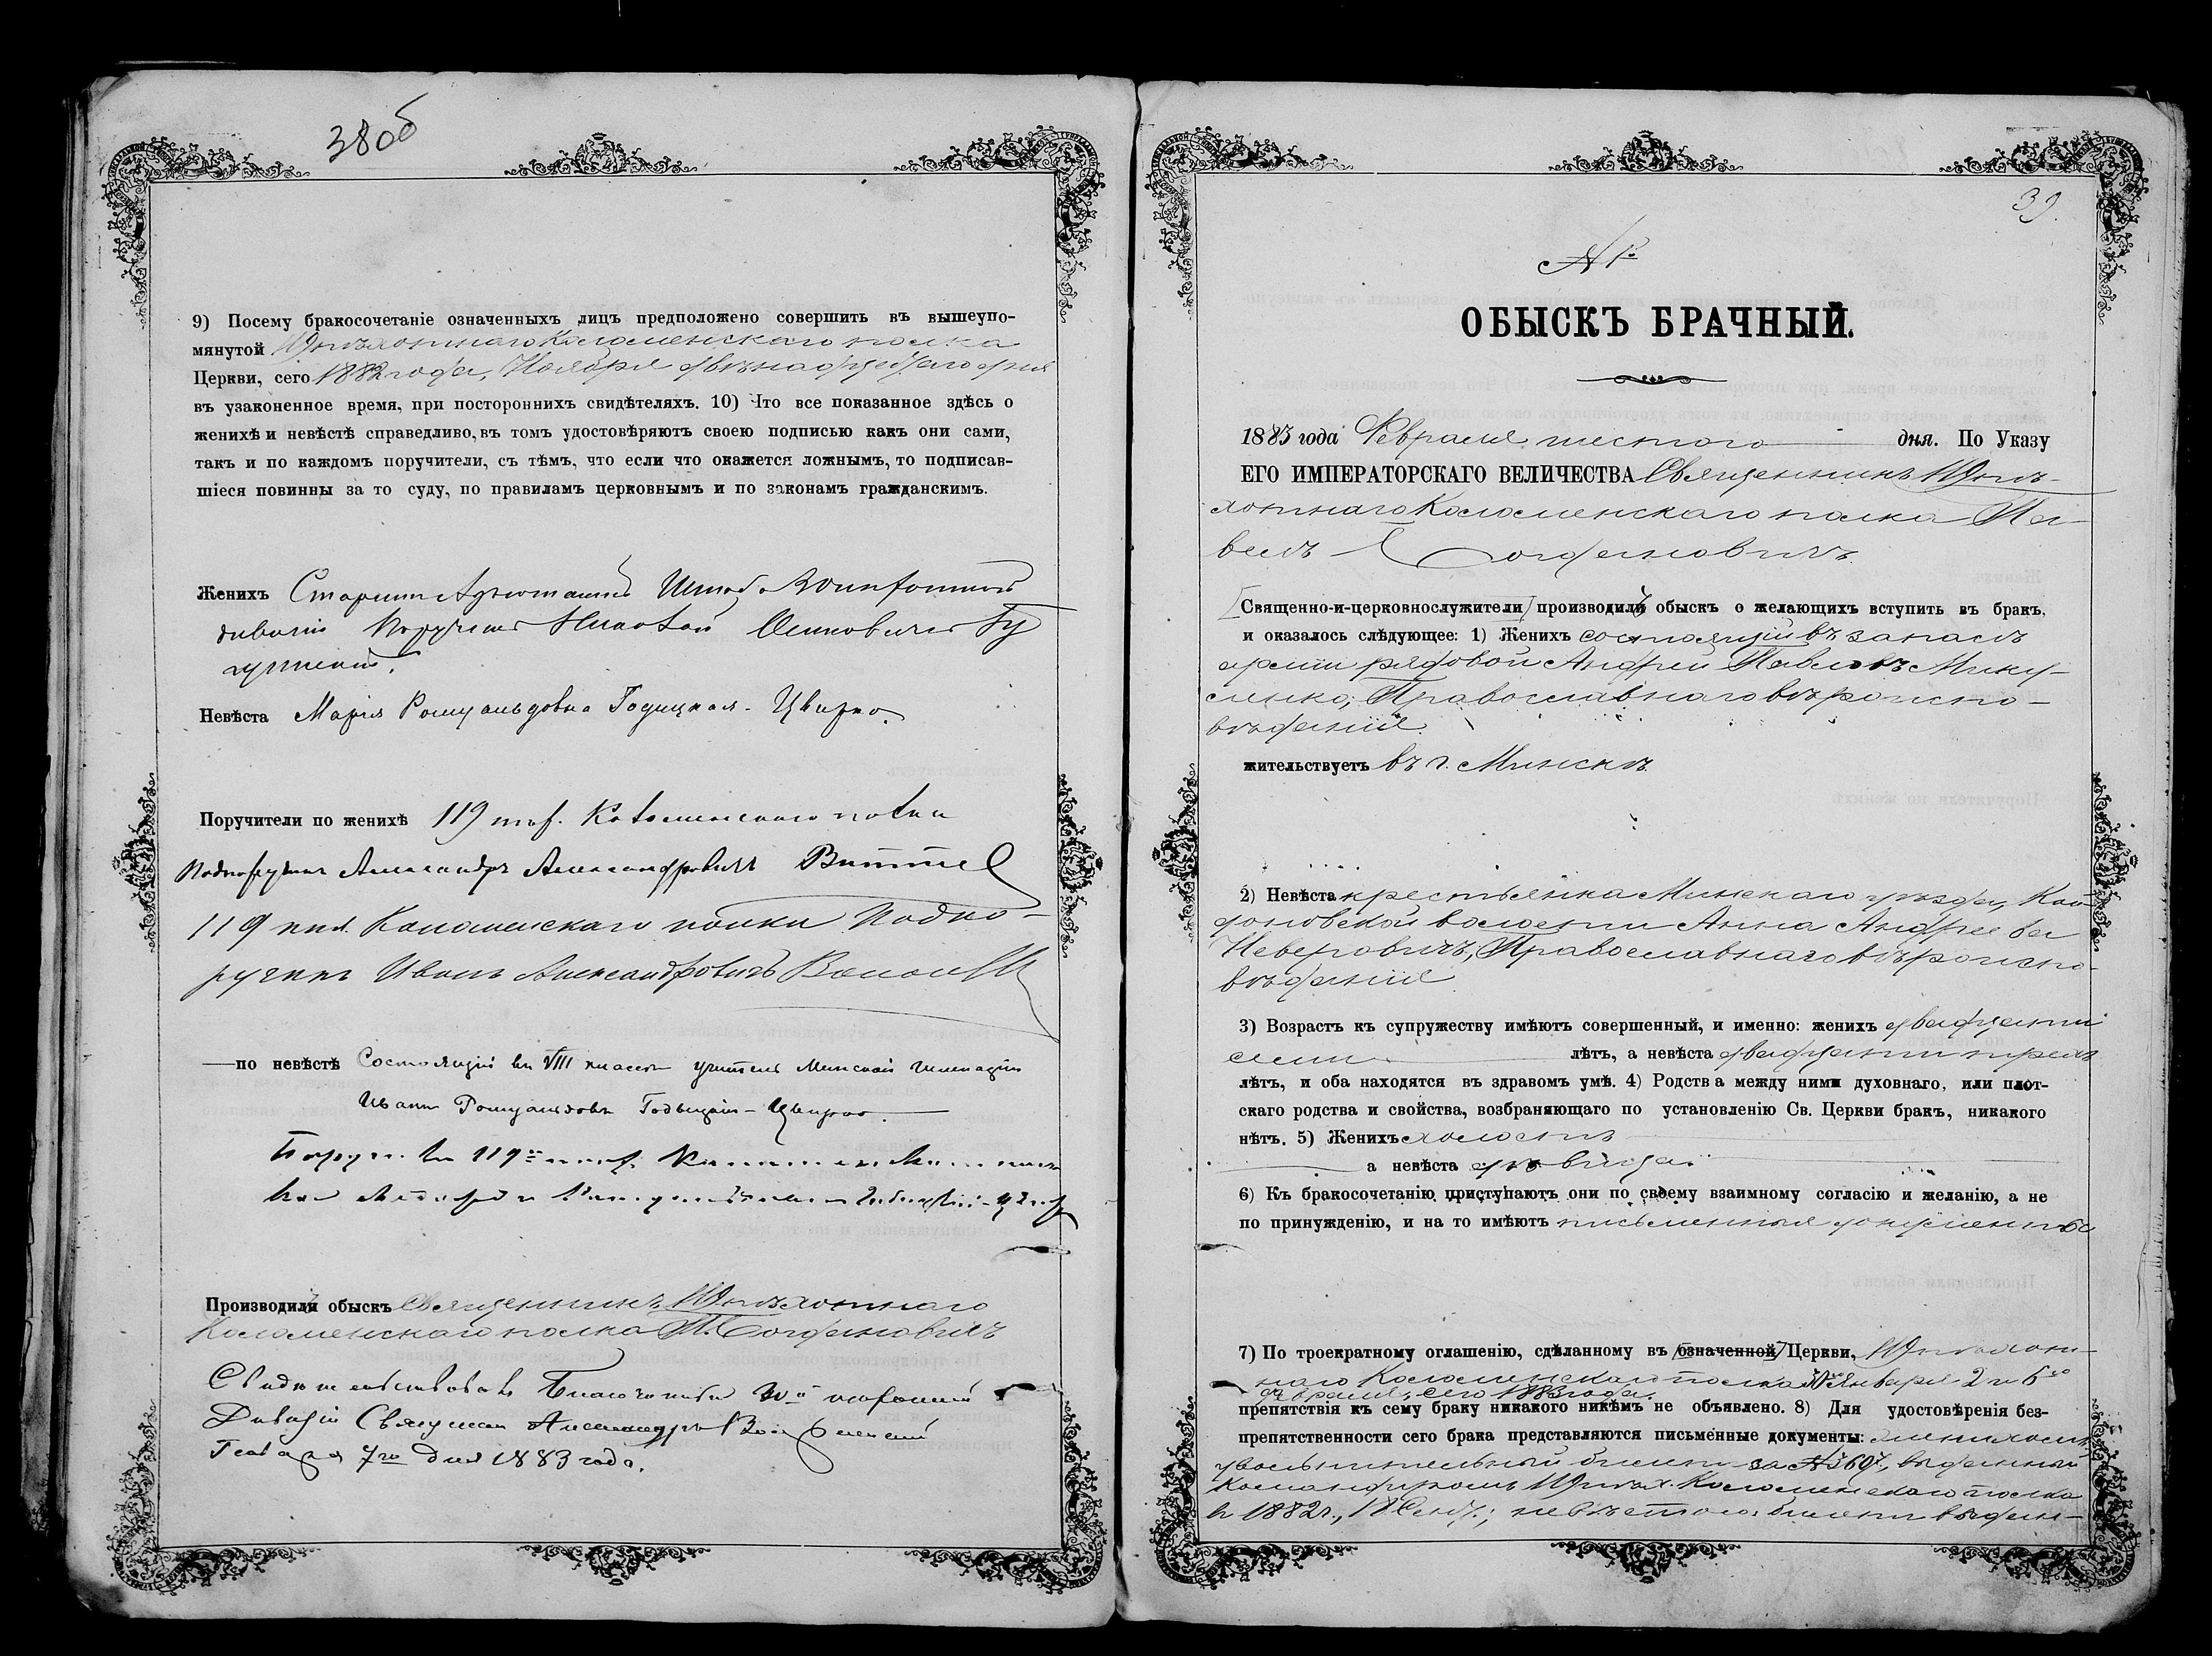 380б
9) Посему бракосочетаніе означенныхъ лицъ предположено совершить въ вышеупо-
мянутой 119 пѣхотнаго Коломенскаго полка
Церкви, сего 1882 года, Ноября двѣнадцатаго дня
въ узаконенное время, при постороннихъ свидѣтеляхъ. 10) Что все показанное здѣсь о
женихѣ и невѣстѣ справедливо, въ томъ удостовѣряютъ своею подписью какъ они сами,
такъ и по каждомъ поручители, съ тѣмъ, что если что окажется ложнымъ, то подписав-
шіеся повинны за то суду, по правиламъ церковнымъ и по законамъ гражданскимъ.
Женихъ Старшій Адъютантъ Штаба 30 пѣхотной
дивизіи Поручикъ Николай Осиповичъ
Невѣста Марія Ромуальдовна Годыцкая-Цвирко.
Поручители по женихѣ 119 пѣх. Коломенскаго полка
Подпоручикъ Александръ Александровичъ Витте
119 пѣх. Коломенскаго полка Подпо-
ручикъ Иванъ Александровичъ
—по невѣстѣ Состоящій въ VIII классѣ учитель Минской гимназіи
Иванъ Ромуальдовъ Годыцкій-Цвирко.
119
Производилъ обыскъ Священникъ 119 пѣхотнаго
Коломенскаго полка П. Богдановичъ
Свидѣтельствовалъ Благочинный 30й пѣхотной
Дивизіи Священникъ Александръ
7го дня 1883 года.
39.
№
ОБЫСКЪ БРАЧНЫЙ.
1883 года Февраля шестого дня. По Указу
ЕГО ИМПЕРАТОРСКАГО ВЕЛИЧЕСТВА Священникъ 119 пѣ-
хотнаго Коломенскаго полка Па-
велъ Богдановичъ
Священно-и-церковнослужители производилъ обыскъ о желающихъ вступить въ бракъ,
и оказалось слѣдующее: 1) Женихъ состоящій въ запасѣ
арміи рядовой Андрей Павловъ Мику-
лко; Православнаго вѣроиспо-
вѣданія.
жительствуетъ въ г. Минскѣ
2) Невѣста крестьянка Минскаго уѣзда, Кой-
дановской волости Анна Андреева
Неверовичъ, Православнаго вѣроиспо-
вѣданія
3) Возрастъ къ супружеству имѣютъ совершенный, и именно: женихъ двадцати
семи лѣтъ, а невѣста двадцати трехъ
лѣтъ, и оба находятся въ здравомъ умѣ. 4) Родства между ними духовнаго, или плот-
скаго родства и свойства, возбраняющаго по установленію Св. Церкви бракъ, никакого
нѣтъ. 5) Женихъ холостъ
а невѣста дѣвица.
6) Къ бракосочетанію приступаютъ они по своему взаимному согласію и желанію, а не
по принужденію, и на то имѣютъ письменныя документы
7) По троекратному оглашенію, сдѣланному въ означенной Церкви, 119 пѣхот-
наго Коломенскаго полка 30 Января 2 и 6го
Февраля, сего 1883 года.
препятствія къ сему браку никакого никѣмъ не объявлено. 8) Для удостовѣренія без-
препятственности сего брака представляются письменные документы: женихомъ
увольнительный билетъ за № 697, выданный
Командиромъ 119 пѣх. Коломенскаго полка
въ 1882г., 18 Сент.; невѣстою: билетъ выдан-